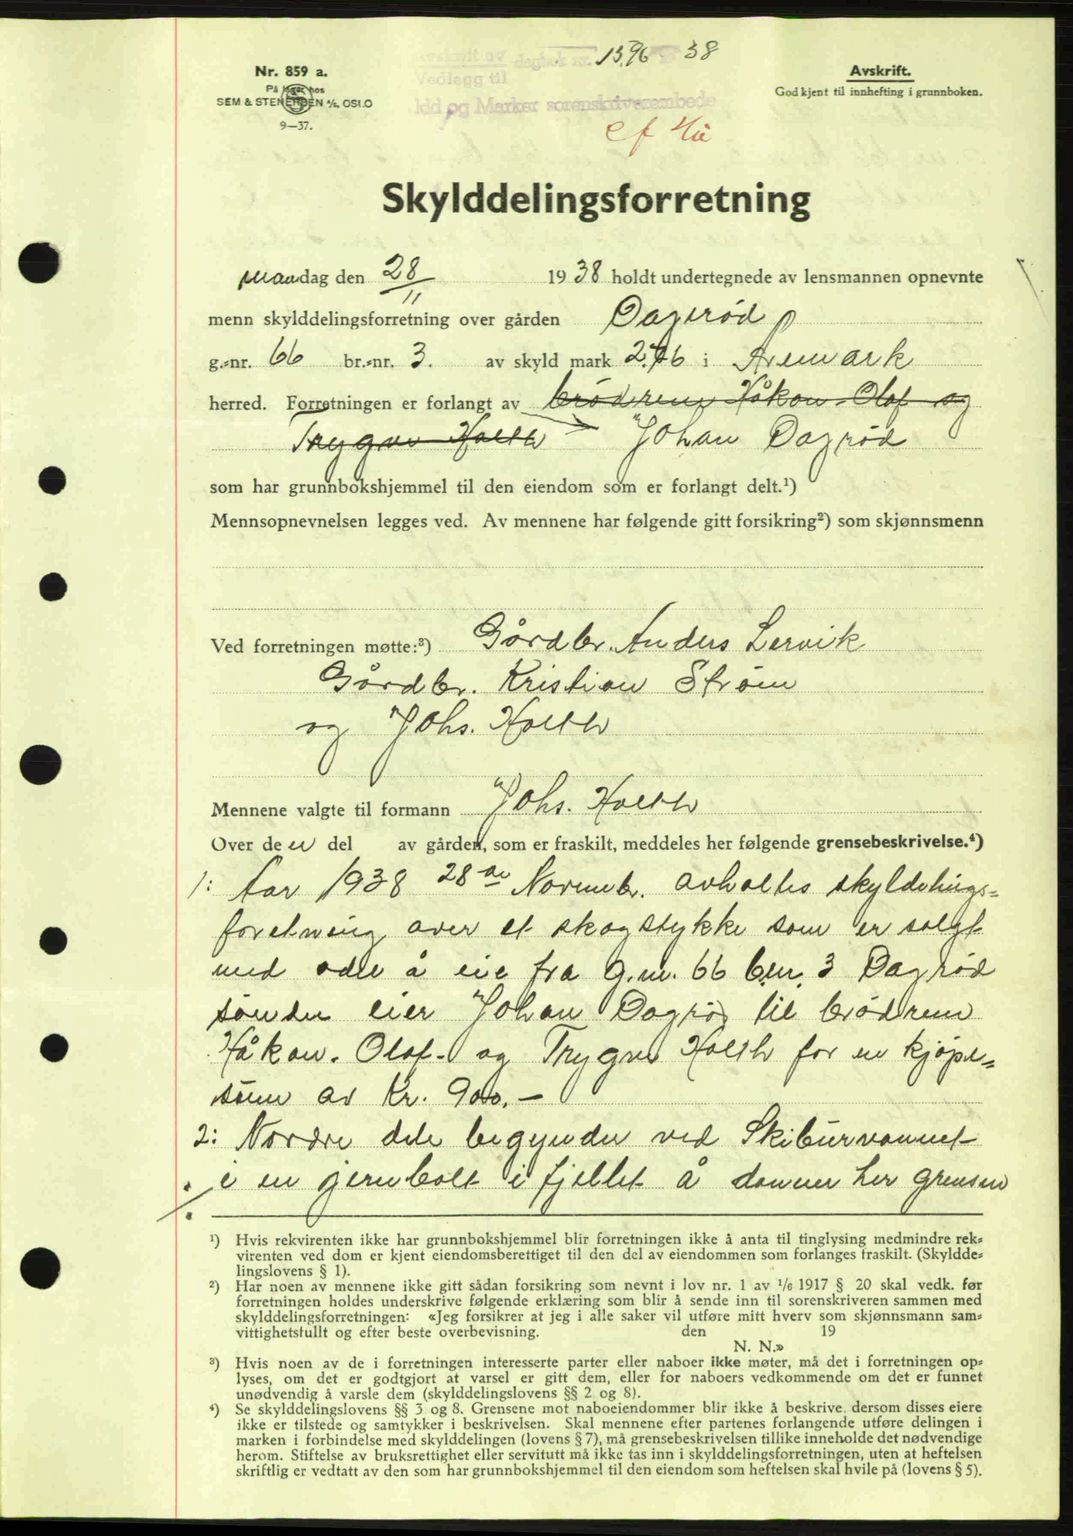 Avskrift av dagbok nr. 1396 38
Vedlegg til
Idd og Marker sorenskriverembede
Nr. 859 a.
På lager hos
SEM & STENERSEN A/S, OSLO
9—37.
Avskrift.
Godkjent til innhefting i grunnboken.
Skylddelingsforretning
mandag den 28/11 1938 holdt undertegnede av lensmannen opnevnte
menn skylddelingsforretning over gården Dagsrød
g.-nr. 66 br.-nr. 3. av skyld mark 2.76 i Aremark
herred. Forretningen er forlangt av brødrene Håkon, Olaf og
Trygve Holth Johan Dagrød
som har grunnbokshjemmel til den eiendom som er forlangt delt.¹)
Mennsopnevnelsen legges ved. Av mennene har følgende gitt forsikring²) som skjønnsmenn
Ved forretningen møtte:³) Gårdbr. Anders Lervik
Gårdbr. Kristian Strøm
og Johs. Holth
Mennene valgte til formann Johs. Holth
Over de er del av gården, som er fraskilt, meddeles her følgende grensebeskrivelse.⁴)
1: Aar 1938 28de Novembr. avholtes skyldelings=
foretning over et skogstykke som er solgt
med odel å eie fra g.nr. 66 b.nr. 3 Dagrød
søndre eier Johan Dagrø til brødrene
Håkon. Olaf. og Trygve Holth for en kjøpe=
sum av Kr. 900.—
2: Nordre dele begynder ved Skiburvannet
i en jernbolt i fjellet å danner her grensen
¹) Hvis rekvirenten ikke har grunnbokshjemmel blir forretningen ikke å anta til tinglysing medmindre rek=
virenten ved dom er kjent eiendomsberettiget til den del av eiendommen som forlanges fraskilt. (Skyldde=
lingslovens § 1).
²) Har noen av mennene ikke gitt sådan forsikring som nevnt i lov nr. 1 av 1/6 1917 § 20 skal vedk. før
forretningen holdes underskrive følgende erklæring som blir å sende inn til sorenskriveren sammen med
skylddelingsforretningen: «Jeg forsikrer at jeg i alle saker vil utføre mitt hverv som skjønnsmann sam=
vittighetsfullt og efter beste overbevisning. den 19
N. N.»
³) Hvis noen av de i forretningen interesserte parter eller naboer ikke møter, må det i forretningen op=
lyses, om det er godtgjort at varsel er gitt dem, eller for naboers vedkommende om det er funnet
unødvendig å varsle dem (skylddelingslovens §§ 2 og 8).
⁴) Se skylddelingslovens §§ 3 og 8. Grensene mot naboeiendommer blir ikke å beskrive, dersom disses eiere
ikke er tilstede og samtykker i beskrivelsen. Skal mennene efter partenes forlangende utføre delingen i
marken i forbindelse med skylddelingen (lovens § 7), må grensebeskrivelsen tillike inneholde det nødvendige
herom. Stiftelse av bruksrettighet eller servitutt må ikke tas inn i skylddelingsforretningen, uten at heftelsen
skriftlig er vedtatt av den som har grunnbokshjemmel til den eiendom som heftelsen skal hvile på (lovens § 5).